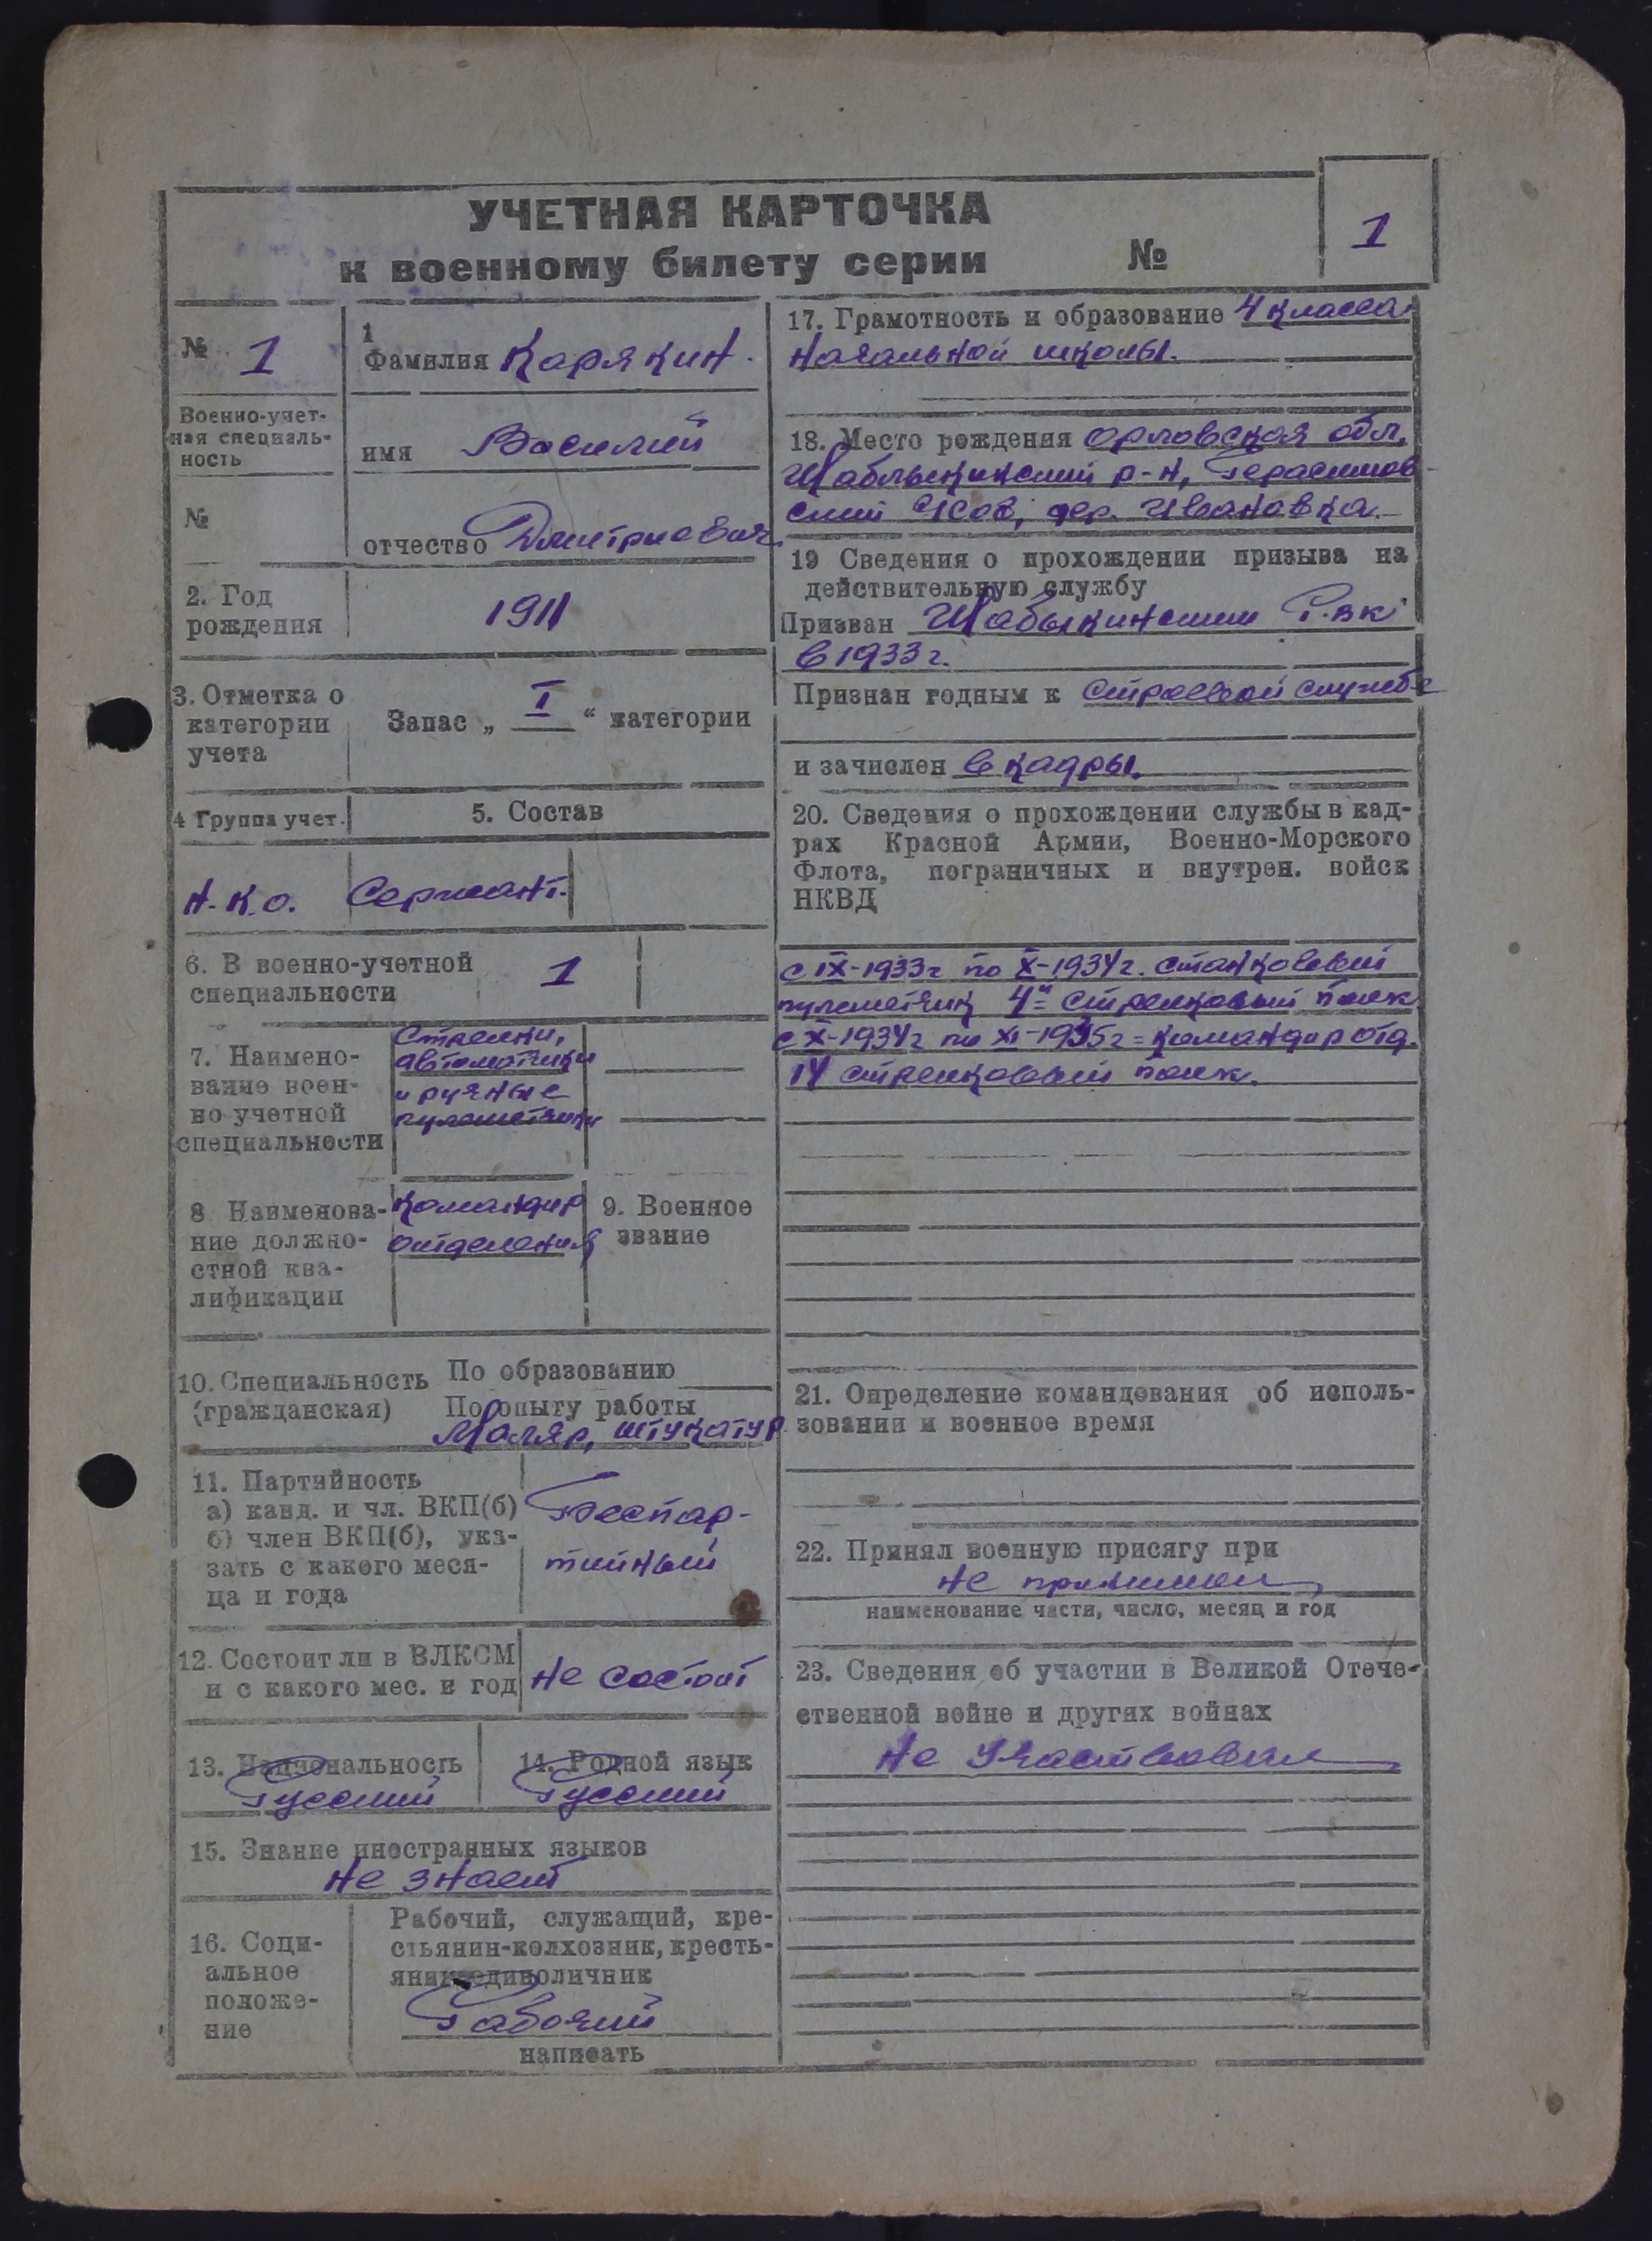 УЧЕТНАЯ КАРТОЧКА
к военному билету серии №
1
№ 1
Военно-учет-
ная специаль-
ность
№
1
Фамилия Карякин.
имя Василий
отчество Дмитриевич.
2. Год
рождения
1911
3. Отметка о
категории
учета
Запас „ I “ категории
4 Группа учет.
5. Состав
Н.К.О.
Сержант.
6. В военно-учетной
специальности
1
7. Наимено-
вание воен-
но-учетной
специальности
Стрелки,
автоматчики
и ручные
пулеметчики
8 Наименова-
ние должно-
стной ква-
лификации
Командир
отделения
9. Военное
звание
10. Специальность
(гражданская)
По образованию
По опыту работы
Маляр, штукатур.
11. Партийность
а) канд. и чл. ВКП(б)
б) член ВКП(б), ука-
зать с какого меся-
ца и года
Беспар-
тийный
12. Состоит ли в ВЛКСМ
и с какого мес. и год
не состоит
13. Национальность
Русский
14. Родной язык
Русский
15. Знание иностранных языков
не знает
16. Соци-
альное
положе-
ние
Рабочий, служащий, кре-
стьянин-колхозник, кресть-
янин-единоличник
Рабочий
написать
17. Грамотность и образование 4 класса
начальной школы.
18. Место рождения Орловская обл,
Шаблыкинский р-н, Герасимов-
ский с/сов, дер. Ивановка.
19 Сведения о прохождении призыва на
действительную службу
Призван Шабыкинским Р.ВК
в 1933 г.
Признан годным к строевой службе
и зачислен в кадры.
20. Сведения о прохождении службы в кад-
рах Красной Армии, Военно-Морского
Флота, пограничных и внутрен. войск
НКВД
с IX-1933г по X-1934г. станковый
пулеметчик 4й стрелковый полк
с X-1934г по XI-1935г = командир отд.
IV стрелковый полк.
21. Определение командования об исполь-
зовании и военное время
22. Принял военную присягу при
не принимал
наименование части, число, месяц и год
23. Сведения об участии в Великой Отече-
ственной войне и других войнах
Не участвовал